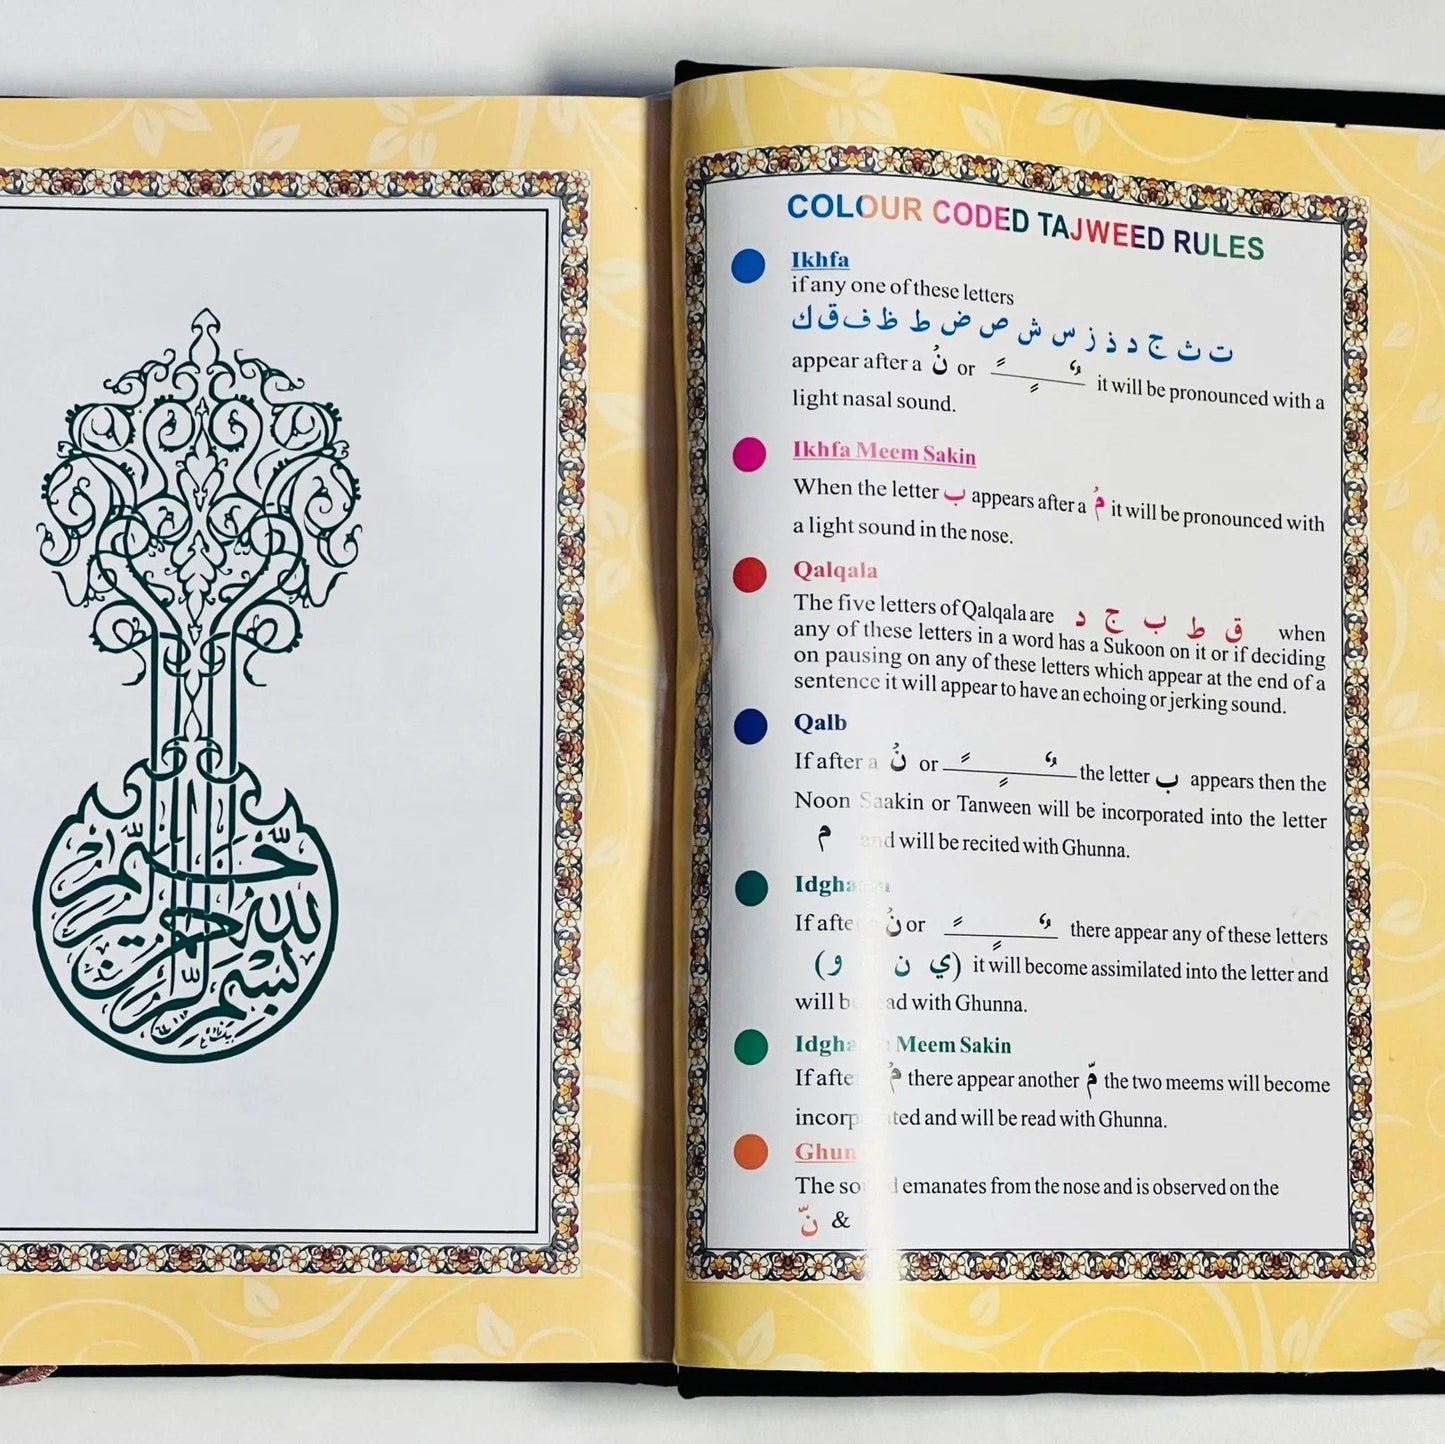 بسم الله الرحمن الرحيم
COLOUR CODED TAJWEED RULES
Ikhfa
if any one of these letters
ت ث ج د ذ ز س ش ص ض ط ظ ف ق ك
appear after a نْ or ً ٍ ٌ it will be pronounced with a
light nasal sound.
Ikhfa Meem Sakin
When the letter ب appears after a مْ it will be pronounced with
a light sound in the nose.
Qalqala
The five letters of Qalqala are ق ط ب ج د when
any of these letters in a word has a Sukoon on it or if deciding
on pausing on any of these letters which appear at the end of a
sentence it will appear to have an echoing or jerking sound.
Qalb
If after a نْ or ً ٍ ٌ the letter ب appears then the
Noon Saakin or Tanween will be incorporated into the letter
م and will be recited with Ghunna.
If نْ or ً ٍ ٌ there appear any of these letters
(ي ن و) it will become assimilated into the letter and
will with Ghunna.
Meem Sakin
If مْ there appear another مّ the two meems will become
and will be read with Ghunna.
The emanates from the nose and is observed on the
نّ &